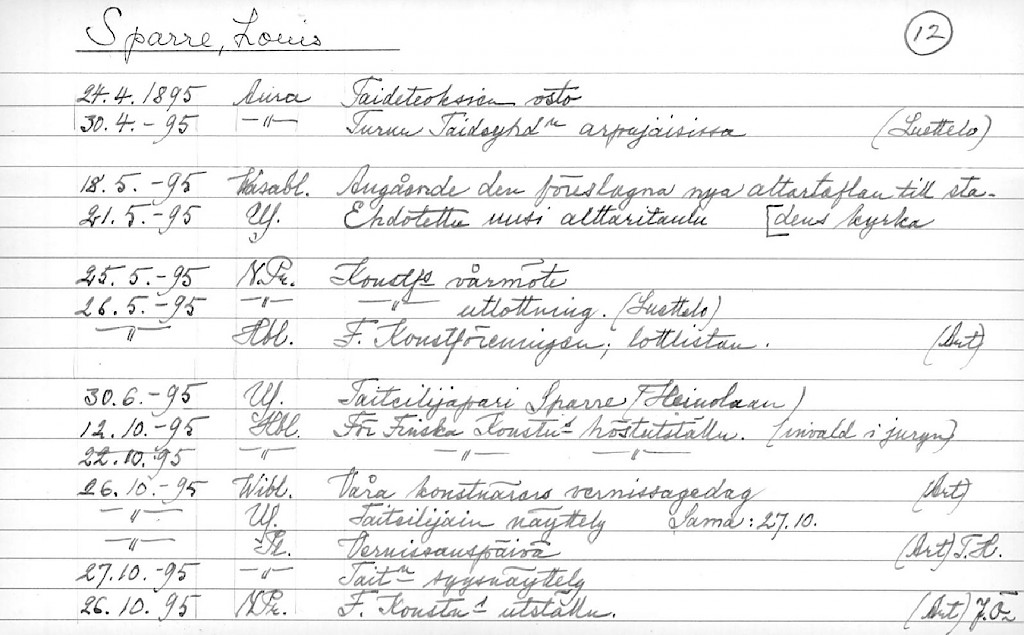 Sparre, Louis 12
24.4.1895 Aura Taideteoksien osto
30.4.-95 -"- Turun Taideyhd:n arpajaisissa (Luettelo)
18.5.-95 Wasabl. Angående den föreslagna nya altartaflan till sta-
21.5.-95 Uf. Ehdotettu uusi alttaritaulu [dens kyrka
25.5.-95 N.Pr. Konstfs vårmöte
26.5.-95 -"- -"- utlottning. (Luettelo)
-"- Hbl. F. Konstföreningen; lottlistan. (Art)
30.6.-95 Uf. Taiteilijapari Sparre (Heinolaan)
12.10.-95 Hbl. För Finska Konstn:s höstutställn. (invald i juryn)
22.10.95 -"- -"- -"-
26.10.-95 Wibl. Våra konstnärers vernissagedag (Art)
-"- Uf. Taiteilijain näyttely Sama: 27.10.
-"- Pl. Vernissauspäivä (Art) T.H.
27.10.-95 -"- Tait:n syysnäyttely
26.10.95 N.Pr. F. Konstn:s utställn. (Art)